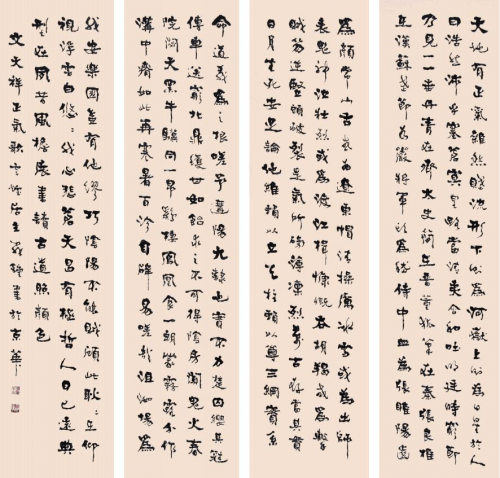 天地有正氣雜然賦流形下則為河嶽上則為日星於人
曰浩然沛乎塞蒼冥皇路當清夷含和吐明庭時窮節
乃見一一垂丹青在齊太史簡在晉董狐筆在秦張良椎
在漢蘇武節為嚴將軍頭為嵇侍中血為張睢陽齒
為顏常山舌或為遼東帽清操厲冰雪或為出師
表鬼神泣壯烈或為渡江楫慷慨吞胡羯或為擊
賊笏逆豎頭破裂是氣所磅礴凜烈萬古存當其貫
日月生死安足論地維賴以立天柱賴以尊三綱實系
命道義為之根嗟予遘陽九隸也實不力楚囚纓其冠
傳車送窮北鼎鑊甘如飴求之不可得陰房闃鬼火春
院閟天黑牛驥同一皂雞棲鳳凰食一朝蒙霧露分作
溝中瘠如此再寒暑百沴自辟易嗟哉沮洳場為
我安樂國豈有他繆巧陰陽不能賊顧此耿〻在仰
視浮雲白悠〻我心悲蒼天曷有極哲人日已遠典
刑在夙昔風檐展書讀古道照顏色
文天祥正氣歌 書於京華